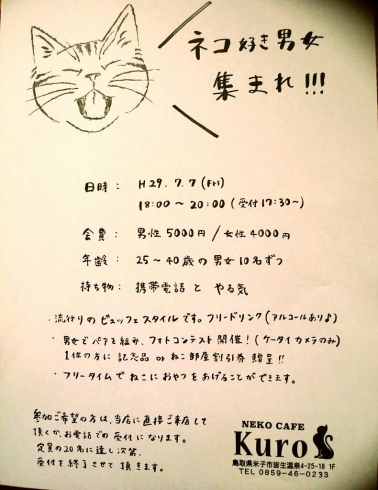 ネコ好き男女
集まれ!!!
日時： H29.7.7(Fri)
18:00～20:00(受付17:30～)
会費： 男性5000円/女性4000円
年齢： 25～40歳の男女10名ずつ
持ち物： 携帯電話とやる気
・流行りのビュッフェスタイルです。フリードリンク(アルコールあり♪)
・男女でペアを組み、フォトコンテスト開催！(ケータイカメラのみ)
1位の方に記念品orねこ部屋割引券贈呈!!
・フリータイムでねこにおやつをあげることができます。
参加ご希望の方は、当店に直接ご来店して
頂くか、お電話での受付になります。
定員の20名に達し次第、
受付を終了させて頂きます。
NEKO CAFE
Kuro
鳥取県米子市皆生温泉4-25-18 1F
TEL 0859-46-0233